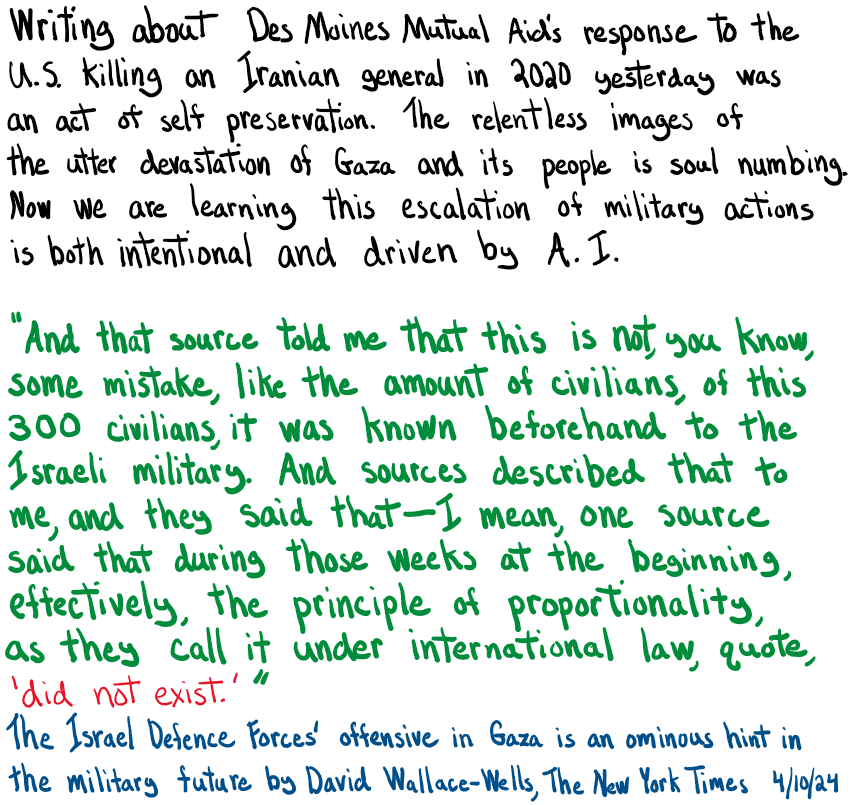 Writing about Des Moines Mutual Aid's response to the
U.S. killing an Iranian general in 2020 yesterday was
an act of self preservation. The relentless images of
the utter devastation of Gaza and its people is soul numbing.
Now we are learning this escalation of military actions
is both intentional and driven by A.I.
"And that source told me that this is not, you know,
some mistake, like the amount of civilians, of this
300 civilians, it was known beforehand to the
Israeli military. And sources described that to
me, and they said that—I mean, one source
said that during those weeks at the beginning,
effectively, the principle of proportionality,
as they call it under international law, quote,
'did not exist.'"
The Israel Defence Forces' offensive in Gaza is an ominous hint in
the military future by David Wallace-Wells, The New York Times 4/10/24